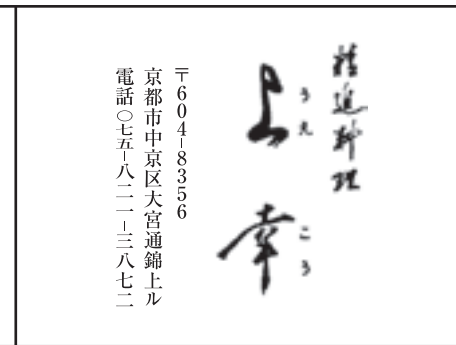 精進料理
上幸
うえ
こう
〒604-8356
京都市中京区大宮通錦上ル
電話〇七五-八二一-三八七二